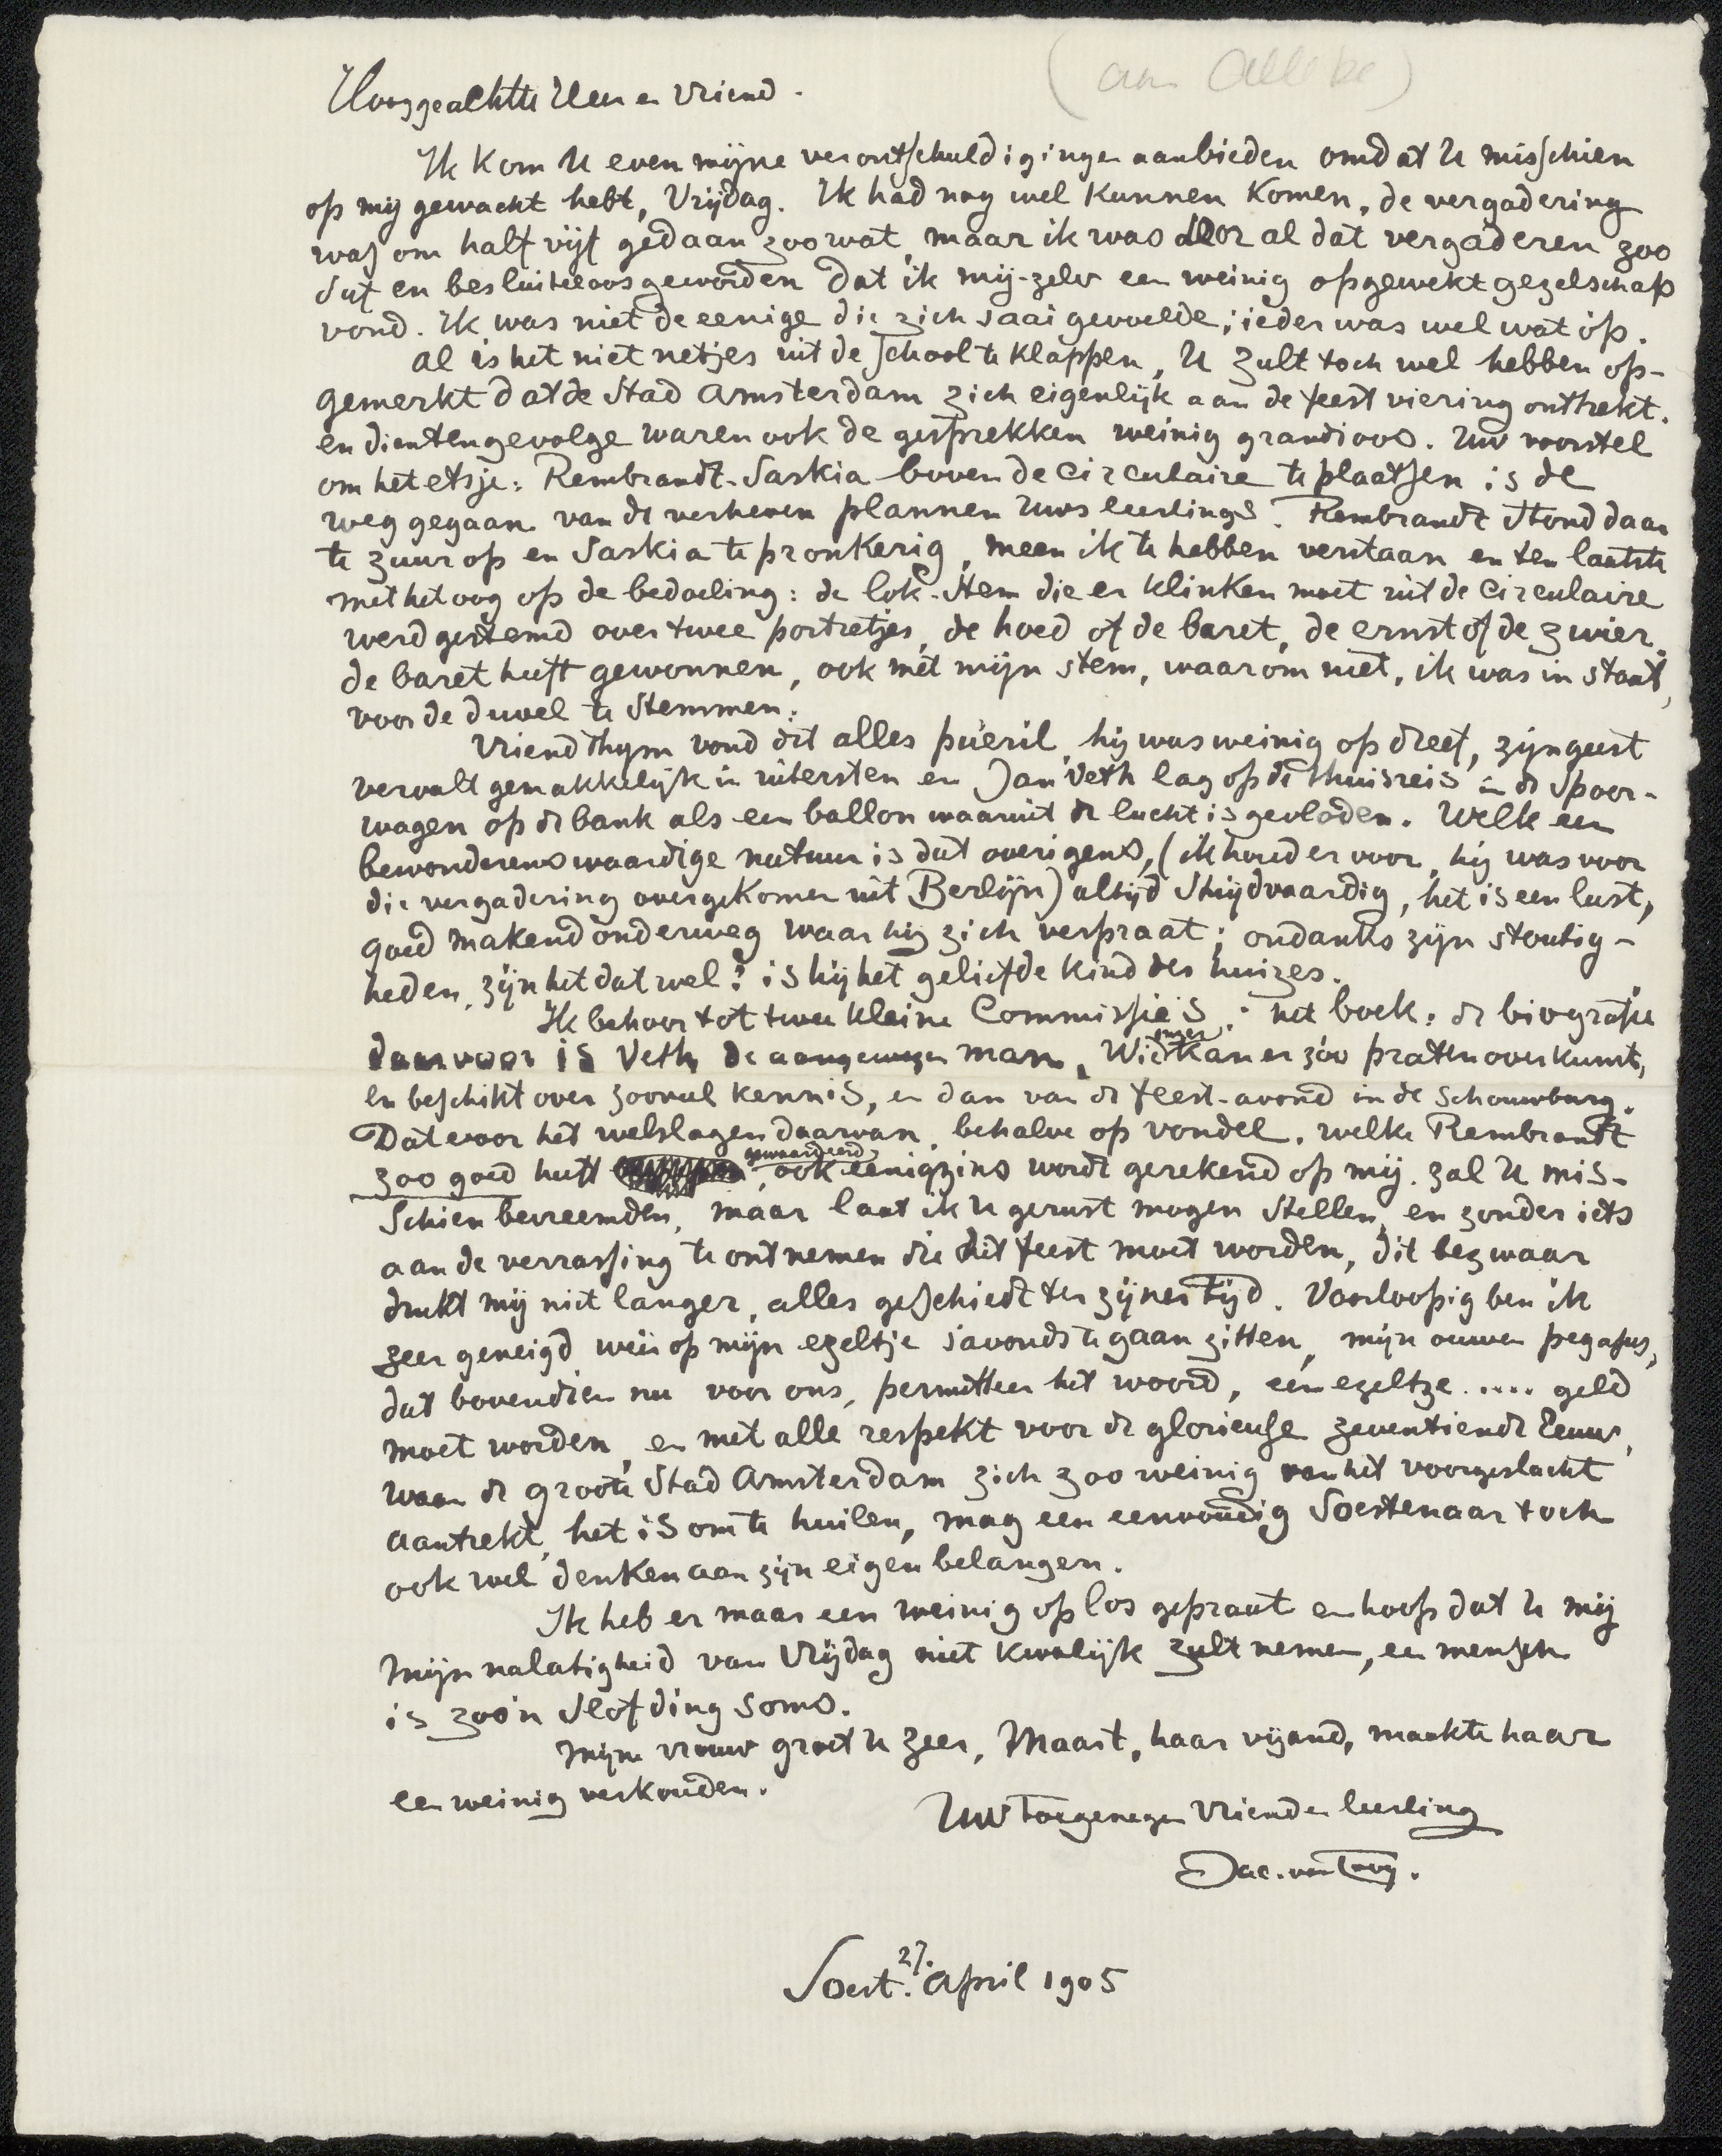 (aan Allebé)
Hooggeachte Heer en Vriend.
Ik kom U even mijne verontschuldigingen aanbieden omdat U misschien
op mij gewacht hebt, Vrijdag. Ik had nog wel kunnen komen, de vergadering
was om half vijf gedaan zoowat, maar ik was door al dat vergaderen zoo
suf en besluiteloos geworden dat ik mij-zelv een weinig opgewekt gezelschap
vond. Ik was niet de eenige die zich saai gevoelde; ieder was wel wat op.
Al is het niet netjes uit de school te klappen, U zult toch wel hebben op-
gemerkt dat de Stad Amsterdam zich eigenlijk aan de feestviering onttrekt.
en dientengevolge waren ook de gesprekken weinig grandioos. Uw voorstel
om het etsje: Rembrandt-Saskia boven de circulaire te plaatsen is de
weg gegaan van de verheven plannen Uws leerlings. Rembrandt stond daar
te zuur op en Saskia te pronkerig, meen ik te hebben verstaan en ten laatste
met het oog op de bedoeling: de lok-stem die er klinken moet uit de circulaire
werd gestemd over twee portretjes, de hoed of de baret, de ernst of de zwier.
de baret heeft gewonnen, ook met mijn stem, waarom niet, ik was in staat,
voor de duvel te stemmen.
Vriend Thym vond dit alles puéril, hij was weinig op dreef, zijn geest
vervalt gemakkelijk in uitersten en Jan Veth lag op de thuisreis in de Spoor-
wagen op de bank als een ballon waaruit de lucht is gevloden. Welk een
bewonderenswaardige natuur is dat overigens, (ik houd er voor, hij was voor
die vergadering overgekomen uit Berlijn) altijd strijdvaardig, het is een lust,
goed makend onderweg waar hij zich verpraat; ondanks zijn stoutig-
heden, zijn het dat wel? is hij het geliefde kind des huizes.
Ik behoor tot twee kleine Commissie's: het boek: de biografie
daarvoor is Veth de aangewezen man, Wie kan er zóo praten over kunst,
en beschikt over zooveel kennis, en dan van de feest-avond in de Schouwburg.
Dat voor het welslagen daarvan, behalve op Vondel, welke Rembrandt
zoo goed heeft gewaardeerd, ook eenigzins wordt gerekend op mij. zal U mis-
schien bevreemden, maar laat ik U gerust mogen stellen, en zonder iets
aan de verrassing te ontnemen die dit feest moet worden, dit bezwaar
drukt mij niet langer, alles geschiedt ter zijner tijd. Voorloopig ben ik
zeer geneigd weêr op mijn ezeltje s'avonds te gaan zitten, mijn ouwen pegasus,
dat bovendien nu voor ons, permitteer het woord, een ezeltje .... geld
moet worden, en met alle respekt voor de glorieuse zeventiende Eeuw,
waar de groote Stad Amsterdam zich zoo weinig van het voorgeslacht
aantrekt, het is om te huilen, mag een eenvoudig Soestenaar toch
ook wel denken aan zijn eigen belangen.
Ik heb er maar een weinig op los gepraat en hoop dat U mij
mijn nalatigheid van Vrijdag niet kwalijk zult nemen, een mensch
is zoo'n slof ding soms.
Mijn vrouw groet U zeer, Maart, haar vijand, maakte haar
een weinig verkouden.
Uw toegenegen Vriend en leerling
Jac. van Looy.
Soest. 27. April 1905